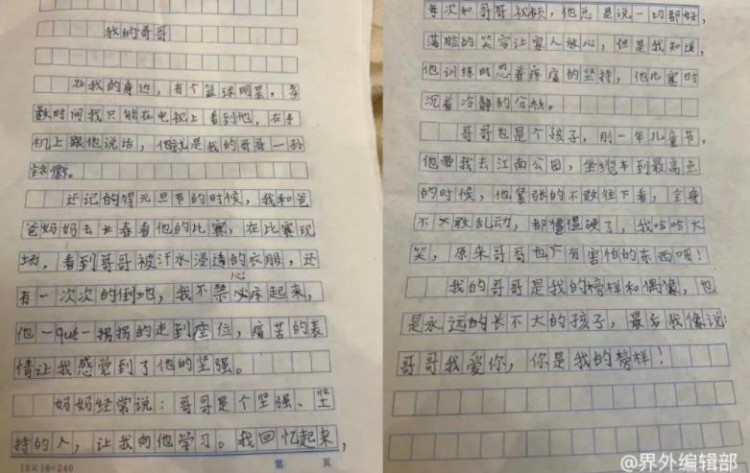 我的哥哥
在我的身边，有个篮球明星，多
数时间我只能在电视上看到他，在手
机上跟他说话，他就是我的哥哥—孙
还记的得元旦节的时候，我和爸
爸妈妈去长春看他的比赛，在比赛现
场，看到哥哥被汗水浸透的衣服，还
有一次次的倒地，我不禁心疼起来，
他一qué一拐拐的走到座位，痛苦的表
情让我感觉到了他的坚强。
妈妈经常说：哥哥是个坚强、坚
持的人，让我向他学习。我回忆起来，
15×16=240
第 页
每次和哥哥视频，他总是说一切都好，
满脸的笑容让家人放心，但是我知道，
他训练时忍着疼痛的坚持，他比赛时
沉着冷静的分析。
哥哥也是个孩子，刚一年儿童节，
他带我去江南公园，坐缆车到最高点
的时候，他紧张的不敢往下看，全身
不敢乱动，都僵硬了，我哈哈大
笑，原来哥哥也有害怕的东西呀！
我的哥哥是我的榜样和偶像，也
是永远的长不大的孩子，最后我像说
哥哥我爱你，你是我的榜样！
@界外编辑部